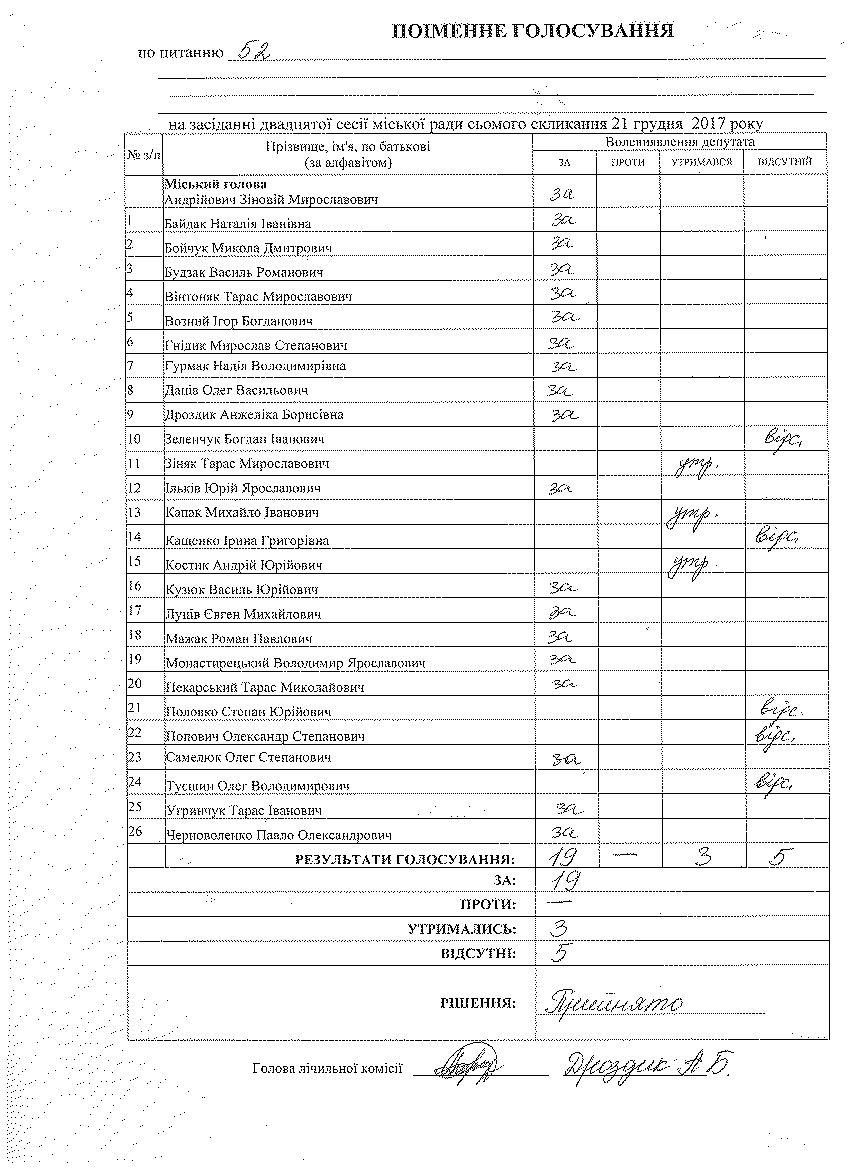 ПОІМЕННЕ ГОЛОСУВАННЯ
по питанню 52
на засіданні двадцятої сесії міської ради сьомого скликання 21 грудня 2017 року
№ з/п Прізвище, ім'я, по батькові (за алфавітом) Волевиявлення депутата
ЗА ПРОТИ УТРИМАВСЯ ВІДСУТНІЙ
Міський голова
Андрійович Зіновій Мирославович за
1 Байдак Наталія Іванівна за
2 Бойчук Микола Дмитрович за
3 Будзак Василь Романович за
4 Вінтоняк Тарас Мирославович за
5 Возний Ігор Богданович за
6 Гнідик Мирослав Степанович за
7 Гурмак Надія Володимирівна за
8 Даців Олег Васильович за
9 Дроздик Анжеліка Борисівна за
10 Зеленчук Богдан Іванович відс.
11 Зіняк Тарас Мирославович утр.
12 Ільків Юрій Ярославович за
13 Капак Михайло Іванович утр.
14 Кащенко Ірина Григорівна відс.
15 Костик Андрій Юрійович утр.
16 Кузюк Василь Юрійович за
17 Лунів Євген Михайлович за
18 Мажак Роман Павлович за
19 Монастирецький Володимир Ярославович за
20 Пекарський Тарас Миколайович за
21 Половко Степан Юрійович відс.
22 Попович Олександр Степанович відс.
23 Самелюк Олег Степанович за
24 Тусшин Олег Володимирович відс.
25 Угринчук Тарас Іванович за
26 Черноволенко Павло Олександрович за
РЕЗУЛЬТАТИ ГОЛОСУВАННЯ: 19 — 3 5
ЗА: 19
ПРОТИ: —
УТРИМАЛИСЬ: 3
ВІДСУТНІ: 5
РІШЕННЯ: Прийнято
Голова лічильної комісії Дроздик А Б.